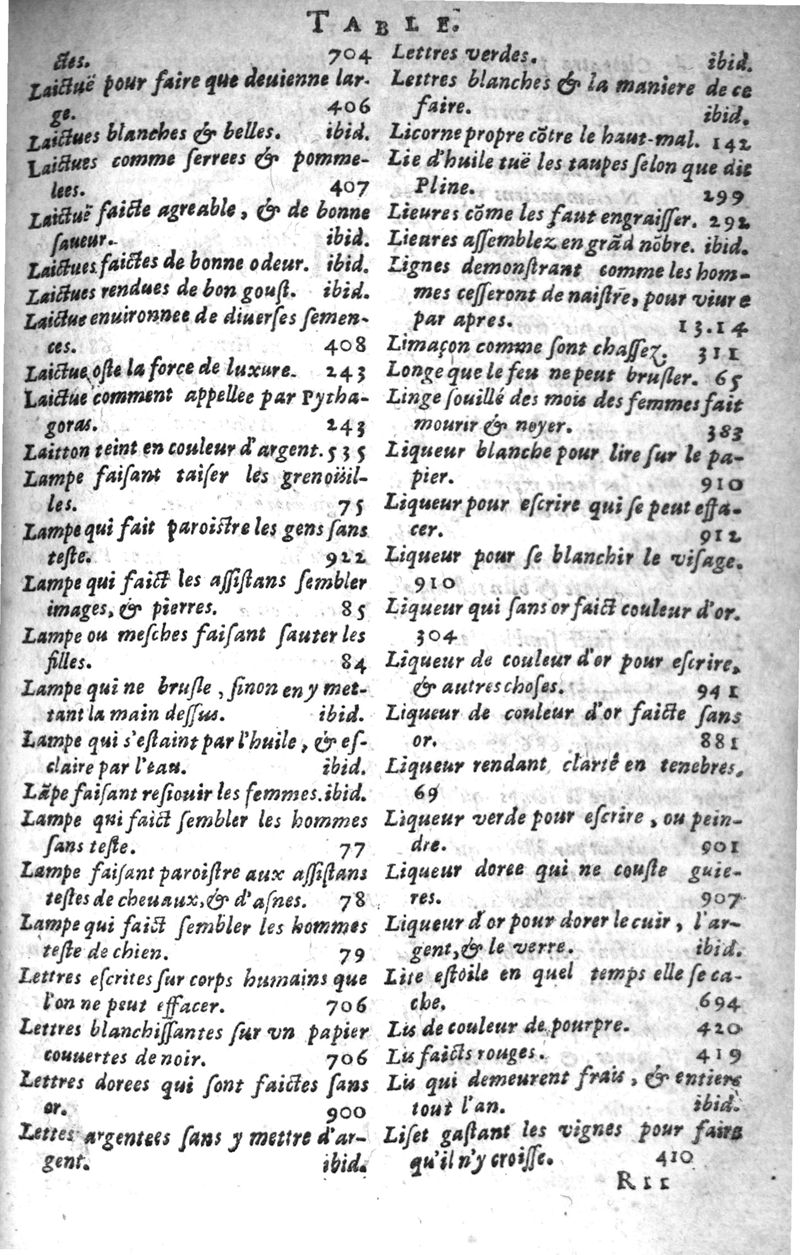 TABLE.
ctes. 704
Laictuë pour faire que deuienne lar-
ge. 406
Laictues blanches & belles. ibid.
Laictues comme ſerrees & pomme-
lees. 407
Laictuë faicte agreable, & de bonne
ſaueur. ibid.
Laictues faictes de bonne odeur. ibid.
Laictues rendues de bon gouſt. ibid.
Laictue enuironnee de diuerſes ſemen-
ces. 408
Laictue oſte la force de luxure. 243
Laictue comment appellee par Pytha-
goras. 243
Laitton teint en couleur d'argent. 535
Lampe faiſant taiſer les grenoüil-
les. 75
Lampe qui fait paroiſtre les gens ſans
teſte. 922
Lampe qui faict les aſſiſtans ſembler
images, & pierres. 85
Lampe ou meſches faiſant ſauter les
filles. 84
Lampe qui ne bruſle, ſinon en y met-
tant la main deſſus. ibid.
Lampe qui s'eſtaint par l'huile, & eſ-
claire par l'eau. ibid.
Lāpe faiſant reſiouir les femmes. ibid.
Lampe qui faict ſembler les hommes
ſans teſte. 77
Lampe faiſant paroiſtre aux aſſiſtans
teſtes de cheuaux, & d'aſnes. 78
Lampe qui faict ſembler les hommes
teſte de chien. 79
Lettres eſcrites ſur corps humains que
l'on ne peut effacer. 706
Lettres blanchiſſantes ſur vn papier
couuertes de noir. 706
Lettres dorees qui ſont faictes ſans
or. 900
Lettes argentees ſans y mettre d'ar-
gent. ibid.
Lettres verdes. ibid.
Lettres blanches & la maniere de ce
faire. ibid.
Licorne propre cōtre le haut-mal. 142
Lie d'huile tuë les taupes ſelon que dit
Pline. 299
Lieures cōme les faut engraiſſer. 292
Lieures aſſemblez en grād nōbre. ibid.
Lignes demonſtrant comme les hom-
mes ceſſeront de naiſtre, pour viure
par apres. 13.14
Limaçon comme ſont chaſſez. 311
Longe que le feu ne peut bruſler. 65
Linge ſouillé des mois des femmes fait
mourir & noyer. 383
Liqueur blanche pour lire ſur le pa-
pier. 910
Liqueur pour eſcrire qui ſe peut effa-
cer. 912
Liqueur pour ſe blanchir le viſage.
910
Liqueur qui ſans or faict couleur d'or.
304
Liqueur de couleur d'or pour eſcrire,
& autres choſes. 941
Liqueur de couleur d'or faicte ſans
or. 881
Liqueur rendant clarté en tenebres.
69
Liqueur verde pour eſcrire, ou pein-
dre. 901
Liqueur doree qui ne couſte guie-
res. 907
Liqueur d'or pour dorer le cuir, l'ar-
gent, & le verre. ibid.
Lite eſtoile en quel temps elle ſe ca-
che. 694
Lis de couleur de pourpre. 420
Lis faicts rouges. 419
Lis qui demeurent frais, & entiers
tout l'an. ibid.
Liſet gaſtant les vignes pour faire
qu'il n'y croiſſe. 410
RII